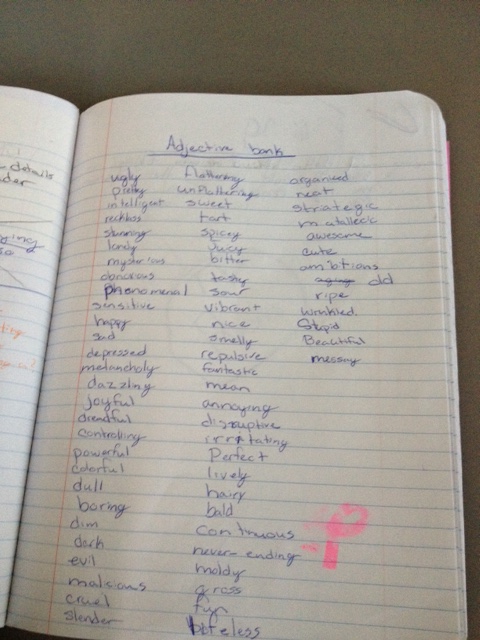 details
Adjective bank
ugly
pretty
intelligent
stunning
lonely
mysterious
obnoxious
phenomenal
sensitive
happy
sad
depressed
melancholy
dazzling
joyful
dreadful
controlling
powerful
colorful
dull
boring
dim
dark
evil
malcious
cruel
slender
flattering
unflattering
sweet
tart
spicy
juicy
bitter
tasty
sour
vibrant
nice
smelly
repulsive
fantastic
mean
annoying
disruptive
irritating
Perfect
lively
hairy
bald
continuous
never-ending
moldy
gross
fun
lifeless
organized
neat
strategic
awesome
cute
ambitions
old
ripe
wrinkled
Stupid
Beautiful
messay